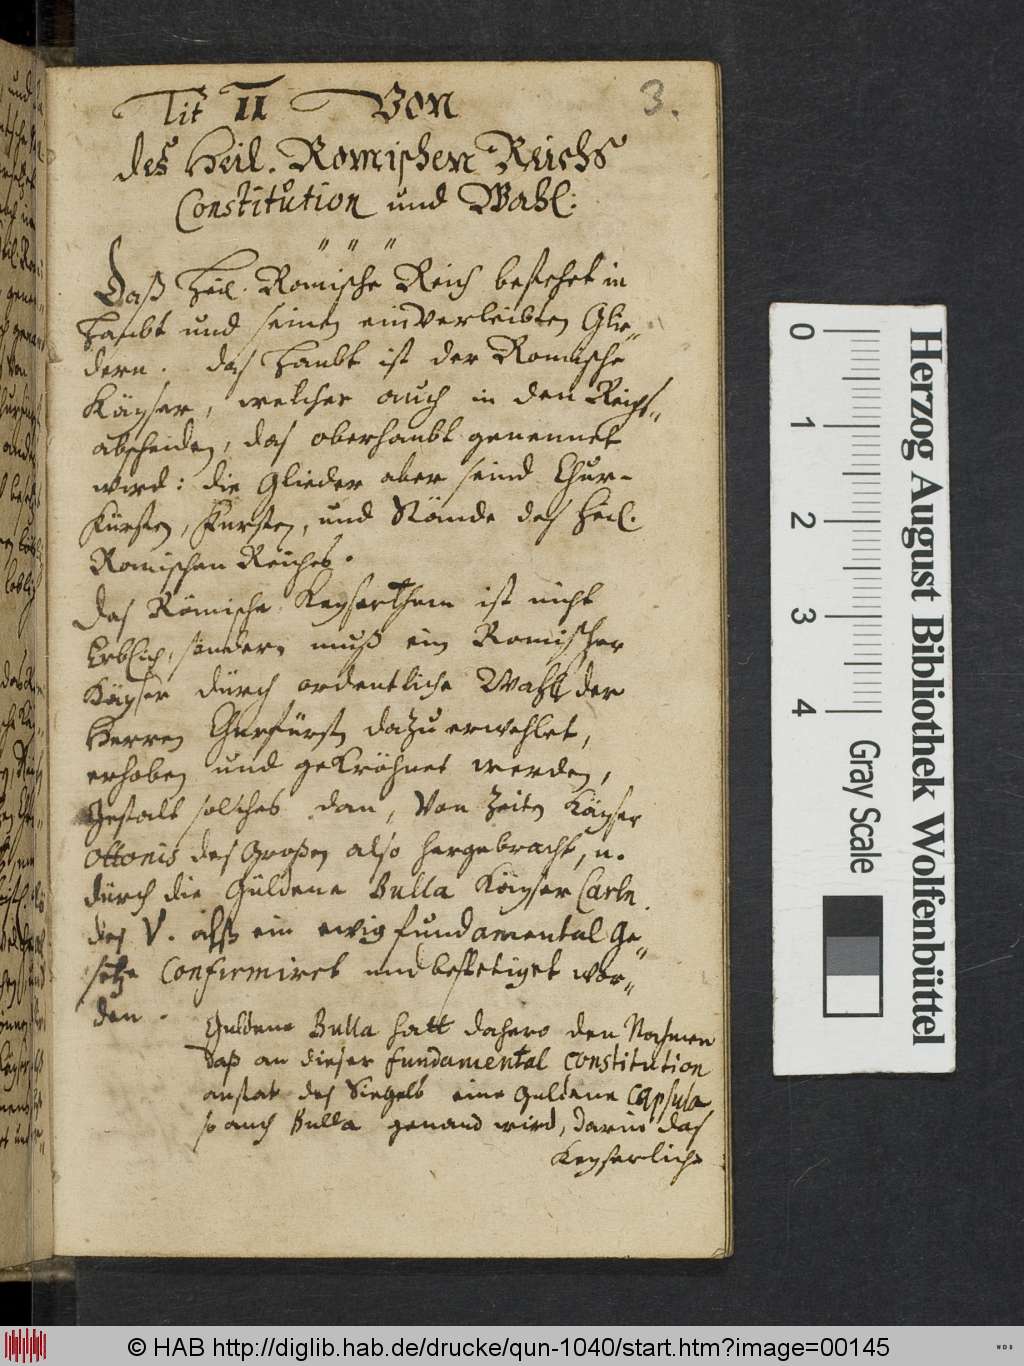 3.
Tit II Von
des Heil. Römischen Reichs
Constitution und Wahl:
Daß Heil. Römische Reich bestehet in
Haubt und seinen einverleibten Glie-
dern. das Haubt ist der Römische
Käyser, welcher auch in den Reichs-
abscheiden, das oberhaubt genennet
wird: die Glieder aber seind Chur-
Fürsten, Fürsten, und Stände des Heil.
Römischen Reiches.
Das Römische Keyserthum ist nicht
Erblich, sondern muß ein Römischer
Käyser dürch ordentliche Wahl der
Herren Churfürsten dazu erwehlet,
erhoben und gekröhnet werden,
Gestalt solches dan, Von Zeiten Käyser
Ottonis des Großen also hergebracht, u.
dürch die Güldene Bulla Käyser Carln
des V. alß ein ewig fundamental Ge-
setze Confirmiret und bestetiget wor-
den.
Guldene Bulla hatt dahero den Nahmen
daß an dieser fundamental Constitution
anstat des Siegels eine Guldene Capsula
so auch Bulla genand wird, darin das
Keyserliche
Herzog August Bibliothek Wolfenbüttel
0 1 2 3 4
Gray Scale
© HAB http://diglib.hab.de/drucke/qun-1040/start.htm?image=00145